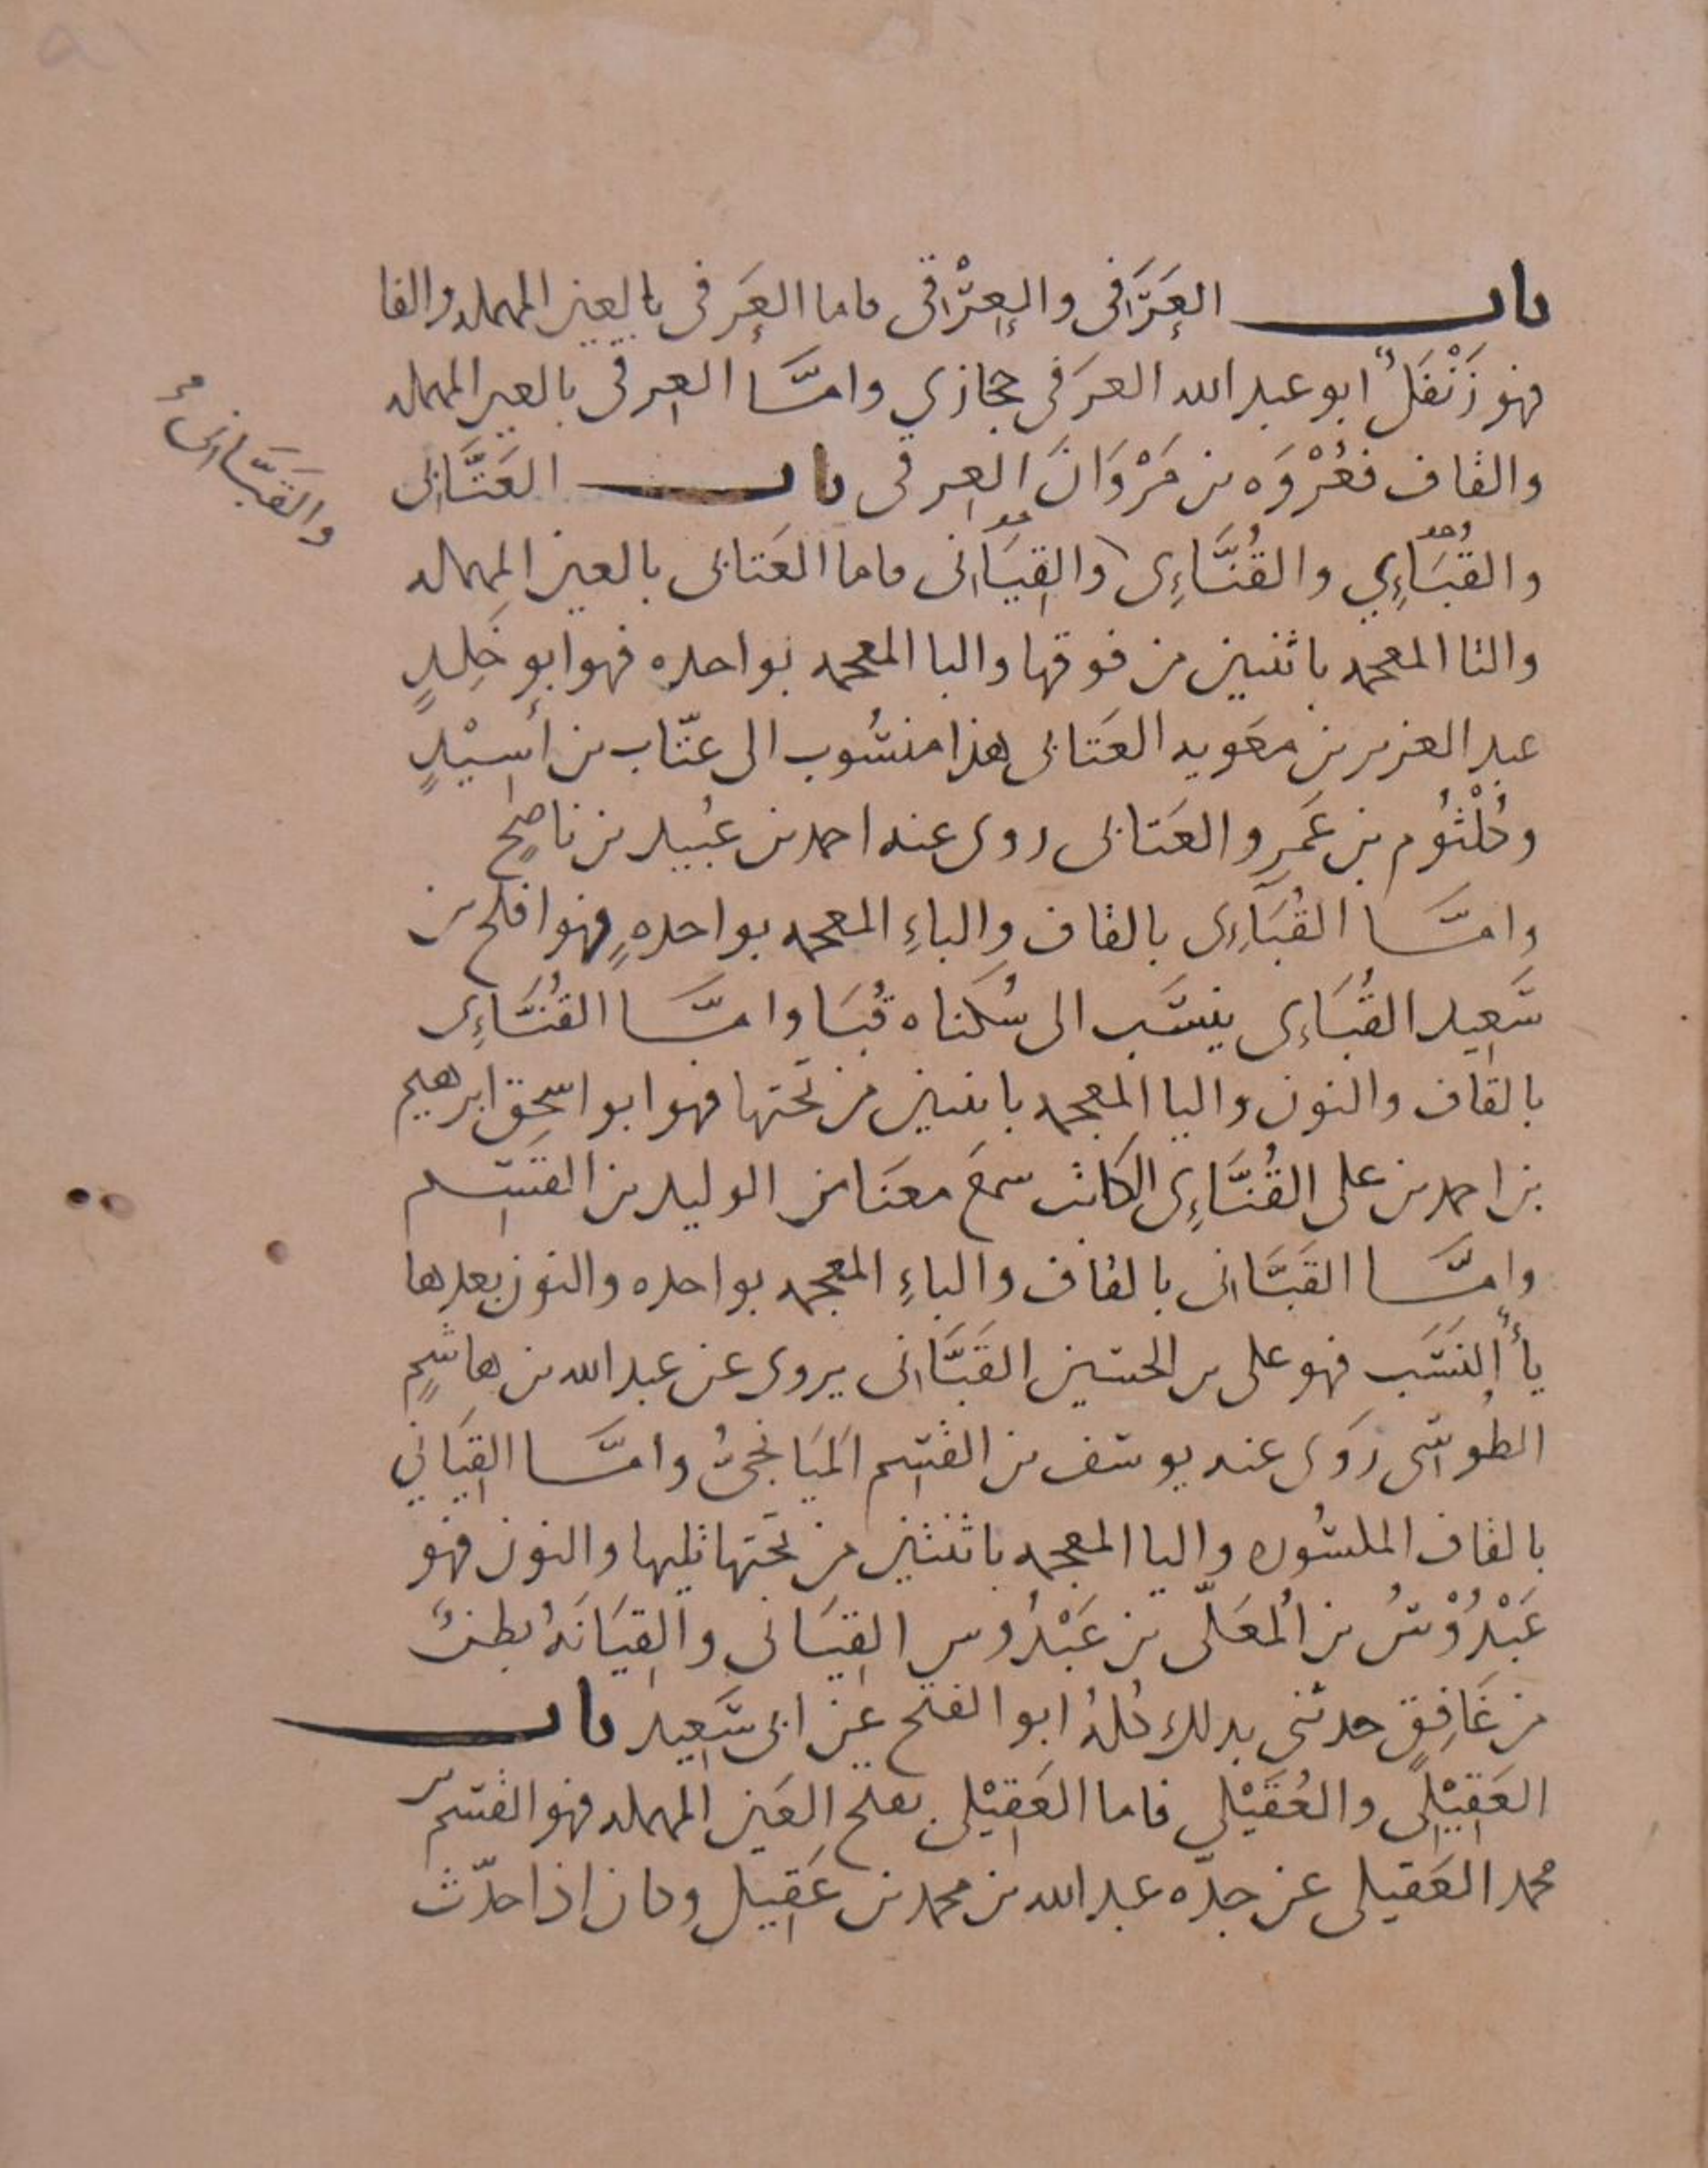 باب العَرَفي والعِرْقي فاما العَرَفي بالعين المهملة والفا
فهو زَنْفَلٌ ابو عبد الله العرَفي حجازي وامَّا العِرقي بالعين المهملة
والقاف فعُرْوَه بن مَرْوَانَ العِرقي باب العَتَّابي
والقُبَاءِي والقُنَّاءِى والقِيَاني فاما العَتابى بالعين المهملة
والقَبَّانى
والتا المعجمة باثنتين من فوقها والبا المعجمة بواحده فهو ابو خلِدٍ
عبد العزيز بن معَويه العَتابى هذا منسُوب الى عتّاب بن أَسِيْدٍ
وكُلْثُوم بن عَمرو العَتابى روى عنه احمد بن عُبيد بن ناصِحٍ
وامَّا القُبَاءِى بالقاف والباءِ المعجمة بواحدهٍ فهو افلح بن
سَعِيد القُبَاءِى ينسَب الى سُكناه قُبَا وامَّا القُنَّاءِى
بالقاف والنون واليا المعجمة باثنتين من تحتها فهو ابو اسحق ابرهيم
بن احمد بن على القُنَّاءِى الكاتب سمعَ معنَا من الوليد بن القسم
وامَّا القَبَّانى بالقاف والباءِ المعجمة بواحده والنون بعدها
يأُ النسَب فهو على بن الحسين القَبَّانى يروى عن عبد الله بن هاشمٍ
الطُوسى رَوَى عنه يوسف بن القسم المَيَانجىُّ وامَّا القِيَاني
بالقاف المكسُوره واليا المعجمة باثنتين من تحتها تليها والنون فهو
عَبْدُوْسُ بن المُعَلّى بن عَبْدُوس القِيَانى والقِيَانَهُ بطنٌ
من غَافِقٍ حدثنى بذلك كُلهُ ابو الفتح عن ابى سَعِيد باب
العَقِيْلي والعُقَيْلي فاما العَقِيْلي بفتح العَين المهملة فهو القسم بن
محمد العَقيلى عن جدّه عبد الله بن محمد بن عَقِيل وكان اذا حدّث